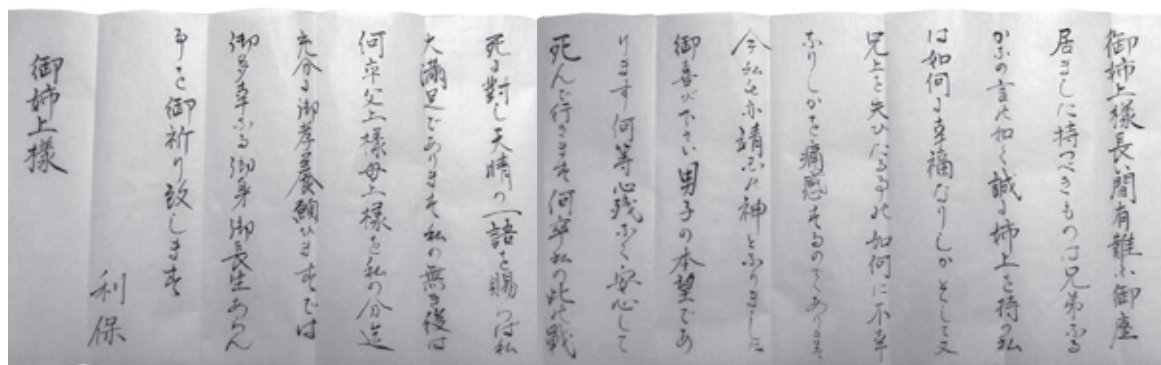 御姉上様長い間有難ふ御座
居ました持つべきものは兄弟なる
かなの言の如く誠に姉上を持つ私
は如何に幸福なりしかそして又
兄上を失ひたる事の如何に不幸
なりしかを痛感するのであります
今私も亦靖國の神となりました
御喜び下さい男子の本望であ
ります何等心残なく安心して
死んで行きます何卒私の此の戰
死に對し天晴の一語を賜らば私
大滿足であります私の無き後は
何卒父上様母上様を私の分迄
充分に御孝養願ひますでは
御多幸なる御身御長生あらん
事を御祈り致します
利保
御姉上様